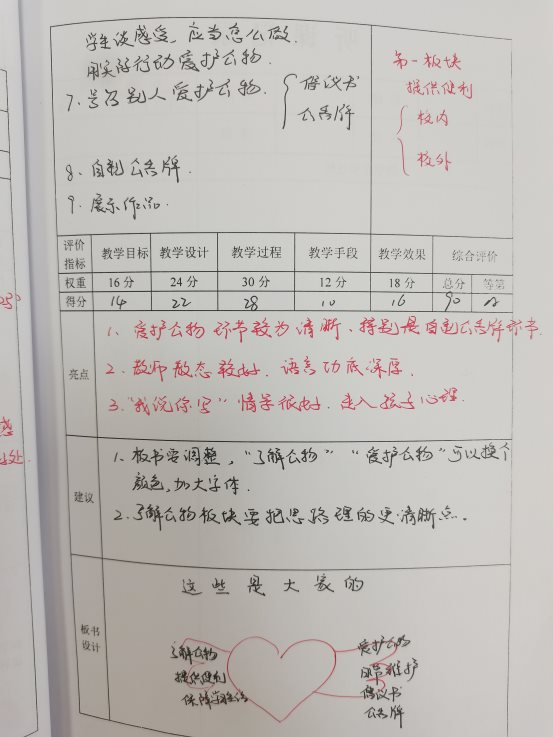 学生谈感受,应当怎么做.
用实际行动爱护公物.
7.号召别人爱护公物.
倡议书
公告牌
8.自制公告牌.
9.展示作品.
第一板块
提供便利
校内
校外
评价指标 教学目标 教学设计 教学过程 教学手段 教学效果 综合评价
权重 16分 24分 30分 12分 18分 总分 等第
得分 14 22 28 10 16 90 A
亮点
1、爱护公物环节较为清晰、特别是自制公告牌环节.
2、教师教态较好.语言功底深厚.
3、"我说你写"情景很好.走入孩子心理.
建议
1、板书要调整,"了解公物""爱护公物"可以换个
颜色,加大字体.
2、了解公物板块要把思路理的更清晰点。
板书设计
这些是大家的
了解公物
提供便利
爱护公物
倡议书
公告牌